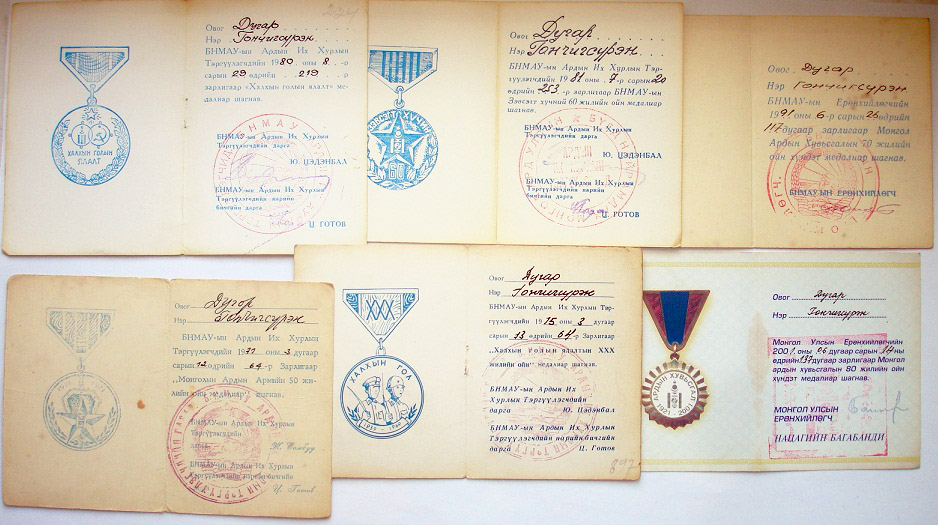 ХАЛХЫН ГОЛЫН
ЯЛАЛТ
Овог Дугар
Нэр Гончигсүрэн
БНМАУ-ын Ардын Их Хурлын
Тэргүүлэгчдийн 1980 оны 8-р
сарын 29 өдрийн 219-р
зарлигаар «Халхын голын ялалт» ме-
далиар шагнав.
БНМАУ-ын Ардын Их Хурлын
Тэргүүлэгчдийн дарга
Ю. ЦЭДЭНБАЛ
БНМАУ-ын Ардын Их Хурлын
Тэргүүлэгчдийн нарийн
бичгийн дарга
Ц. ГОТОВ
60
Овог Дугар
Нэр Гончигсүрэн
БНМАУ-ын Ардын Их Хурлын Тэр-
гүүлэгчдийн 1981 оны 7-р сарын 20
өдрийн 253-р зарлигаар БНМАУ-ын
Зэвсэгт хүчний 60 жилийн ойн медалиар
шагнав.
БНМАУ-ын Ардын Их Хурлын
Тэргүүлэгчдийн дарга
Ю. ЦЭДЭНБАЛ
БНМАУ-ын Ардын Их Хурлын
Тэргүүлэгчдийн нарийн
бичгийн дарга
Ц. ГОТОВ
Овог Дугар
Нэр Гончигсүрэн
БНМАУ-ын Ерөнхийлөгчийн
1991 оны 6-р сарын 26 өдрийн
117 дугаар зарлигаар Монгол
Ардын Хувьсгалын 70 жилийн
ойн хүндэт медалиар шагнав.
БНМАУ-ЫН ЕРӨНХИЙЛӨГЧ
Овог Дугар
Нэр Гончигсүрэн
БНМАУ-ын Ардын Их Хурлын
Тэргүүлэгчдийн 1971 оны 3 дугаар
сарын 12 өдрийн 64-р Зарлигаар
„Монголын Ардын Армийн 50 жи-
лийн ойн медалиар" шагнав.
БНМАУ-ын Ардын Их Хурлын
Тэргүүлэгчдийн
дарга Ж. Самбуу
БНМАУ-ын Ардын Их Хурлын
Тэргүүлэгчдийн нарийн бичгийн
Ц. Готов
XXX
ХАЛХЫН ГОЛ
Овог Дугар
Нэр Гончигсүрэн
БНМАУ-ын Ардын Их Хурлын Тэр-
гүүлэгчдийн 1975 оны 3 дугаар
сарын 13 өдрийн 64-р Зарлигаар
„Халхын голын ялалтын XXX
жилийн ойн" медалиар шагнав.
БНМАУ-ын Ардын Их
Хурлын Тэргүүлэгчдийн
дарга Ю. Цэдэнбал
БНМАУ-ын Ардын Их Хурлын
Тэргүүлэгчдийн нарийн бичгийн
дарга Ц. Готов
АРДЫН ХУВЬСГАЛ
1921 2001
Овог Дугар
Нэр Гончигсүрэн
Монгол Улсын Ерөнхийлөгчийн
2001 оны 06 дугаар сарын 14-ны
өдрийн 137 дугаар зарлигаар Монгол
ардын хувьсгалын 80 жилийн ойн
хүндэт медалиар шагнав.
МОНГОЛ УЛСЫН
ЕРӨНХИЙЛӨГЧ
НАЦАГИЙН БАГАБАНДИ